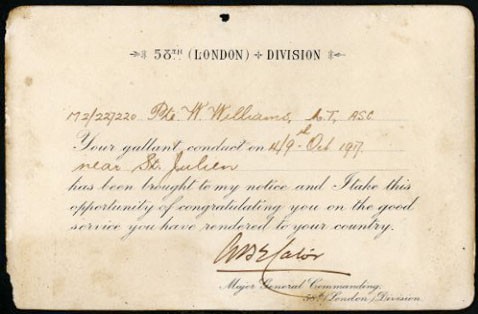 58TH (LONDON) + DIVISION
M2/227220 Pte. W. Williams, M.T., ASC
Your gallant conduct on 4/9th Oct 1917
near St. Julien
has been brought to my notice and I take this
opportunity of congratulating you on the good
service you have rendered to your country.
Major General Commanding.
58th (London) Division.